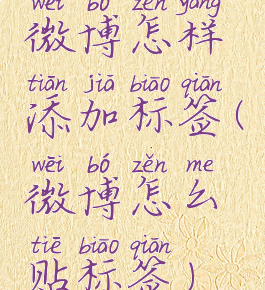 wēi bó zěn yàng
微博怎样
tiān jiā biāo qiān
添加标签(
wēi bó zěn me
微博怎么
tiē biāo qiān
贴标签)